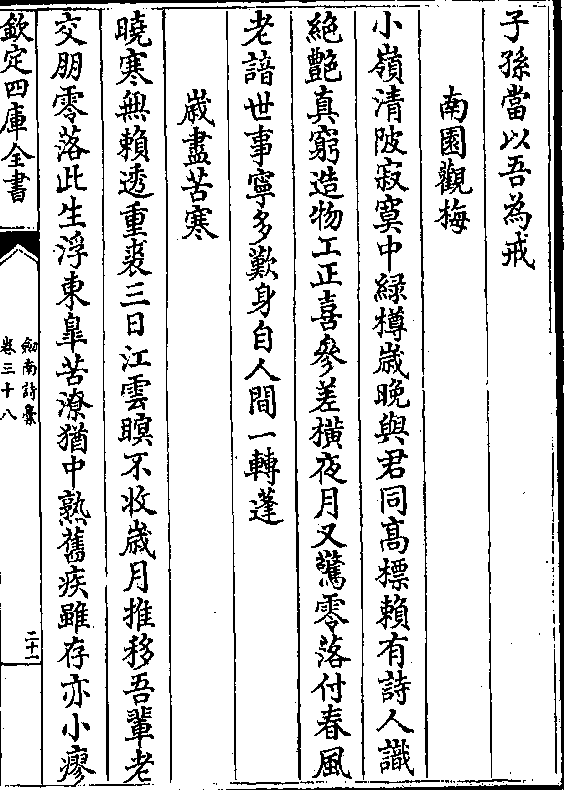 子孫當以吾為戒
南園觀梅
小嶺清陂寂寞中綠樽歲晚與君同高標賴有詩人識
絕艷真窮造物工正喜參差橫夜月又驚零落付春風
老諳世事寧多歎身自人間一轉蓬
歲盡苦寒
曉寒無賴透重裘三日江雲暝不收歲月推移吾輩老
交朋零落此生浮東臯苦潦猶中熟舊疾雖存亦小瘳
欽定四庫全書
劒南詩藁
卷三十八
二十一